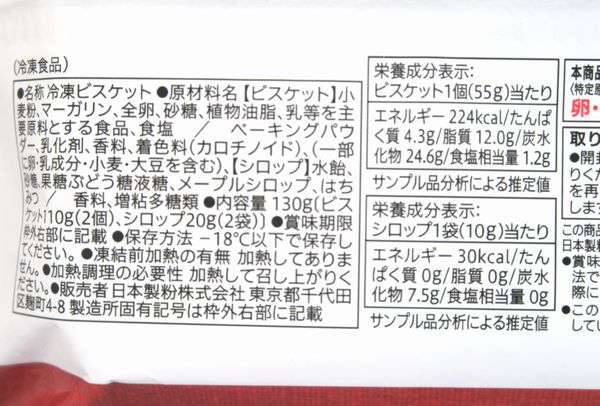 (冷凍食品)
●名称 冷凍ビスケット ●原材料名【ビスケット】小
麦粉、マーガリン、全卵、砂糖、植物油脂、乳等を主
要原料とする食品、食塩 ／ ベーキングパウ
ダー、乳化剤、香料、着色料(カロチノイド)、(一部
に卵・乳成分・小麦・大豆を含む)、【シロップ】水飴、
砂糖、果糖ぶどう糖液糖、メープルシロップ、はち
みつ ／ 香料、増粘多糖類 ●内容量 130g(ビス
ケット110g(2個)、シロップ20g(2袋)) ●賞味期限
枠外右部に記載 ●保存方法 −18℃以下で保存し
てください。●凍結前加熱の有無 加熱してありま
せん。●加熱調理の必要性 加熱して召し上がりく
ださい。●販売者 日本製粉株式会社 東京都千代田
区麹町4-8 製造所固有記号は枠外右部に記載
栄養成分表示:
ビスケット1個(55g)当たり
エネルギー 224kcal/たんぱ
く質 4.3g/脂質 12.0g/炭水
化物 24.6g/食塩相当量 1.2g
サンプル品分析による推定値
栄養成分表示:
シロップ1袋(10g)当たり
エネルギー 30kcal/たん
ぱく質 0g/脂質 0g/炭水
化物 7.5g/食塩相当量 0g
サンプル品分析による推定値
本商品
(特定原
卵・
取り
●開封
りくだ
を再
します
この商品
日本製粉
●賞味
法で
際に
●この
してい